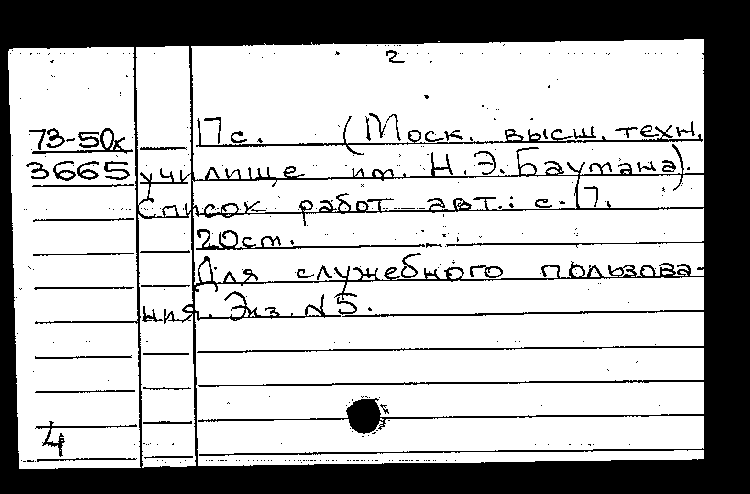 2
73-50х 17 с. (Моск. высш. техн.
3665 училище им. Н.Э. Баумана).
Список работ авт.: с. 17.
20 см.
Для служебного пользова-
ния. Экз. N 5.
4